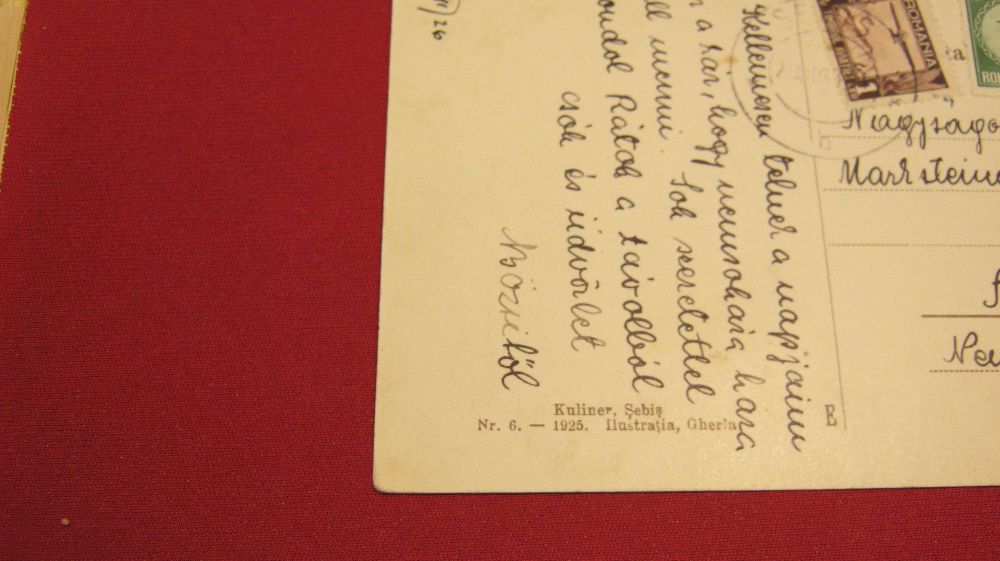 26
Kellemesen telnek a napjaim
a kár, hogy nemsokára haza
ll menni. Sok szeretettel
gondol Rátok a távolból
csók és üdvözlet
Mőzsitől
ROMANIA
1
ROM
Nagyságo
Marksteine
Kuliner, Șebiș
Nr. 6. — 1925. Ilustrația, Gherla
E